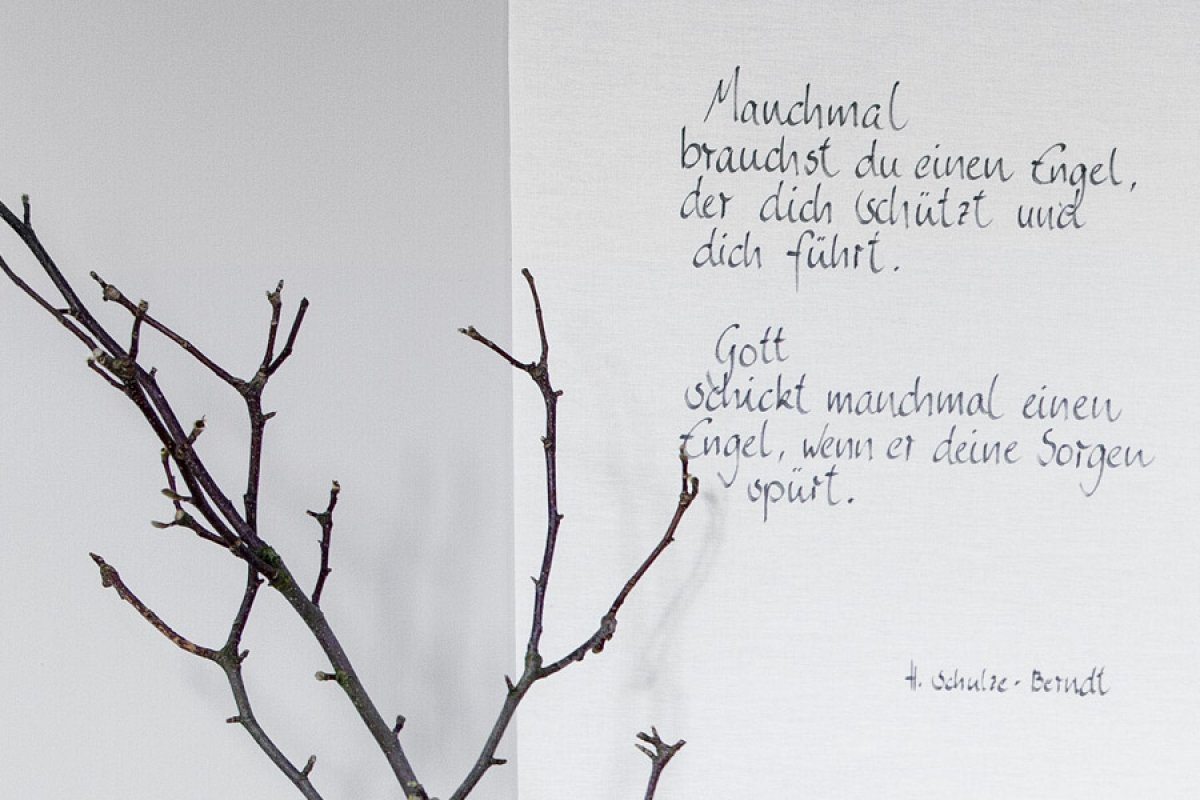 Manchmal
brauchst du einen Engel,
der dich schützt und
dich führt.
Gott
schickt manchmal einen
Engel, wenn er deine Sorgen
spürt.
H. Schulze-Berndt